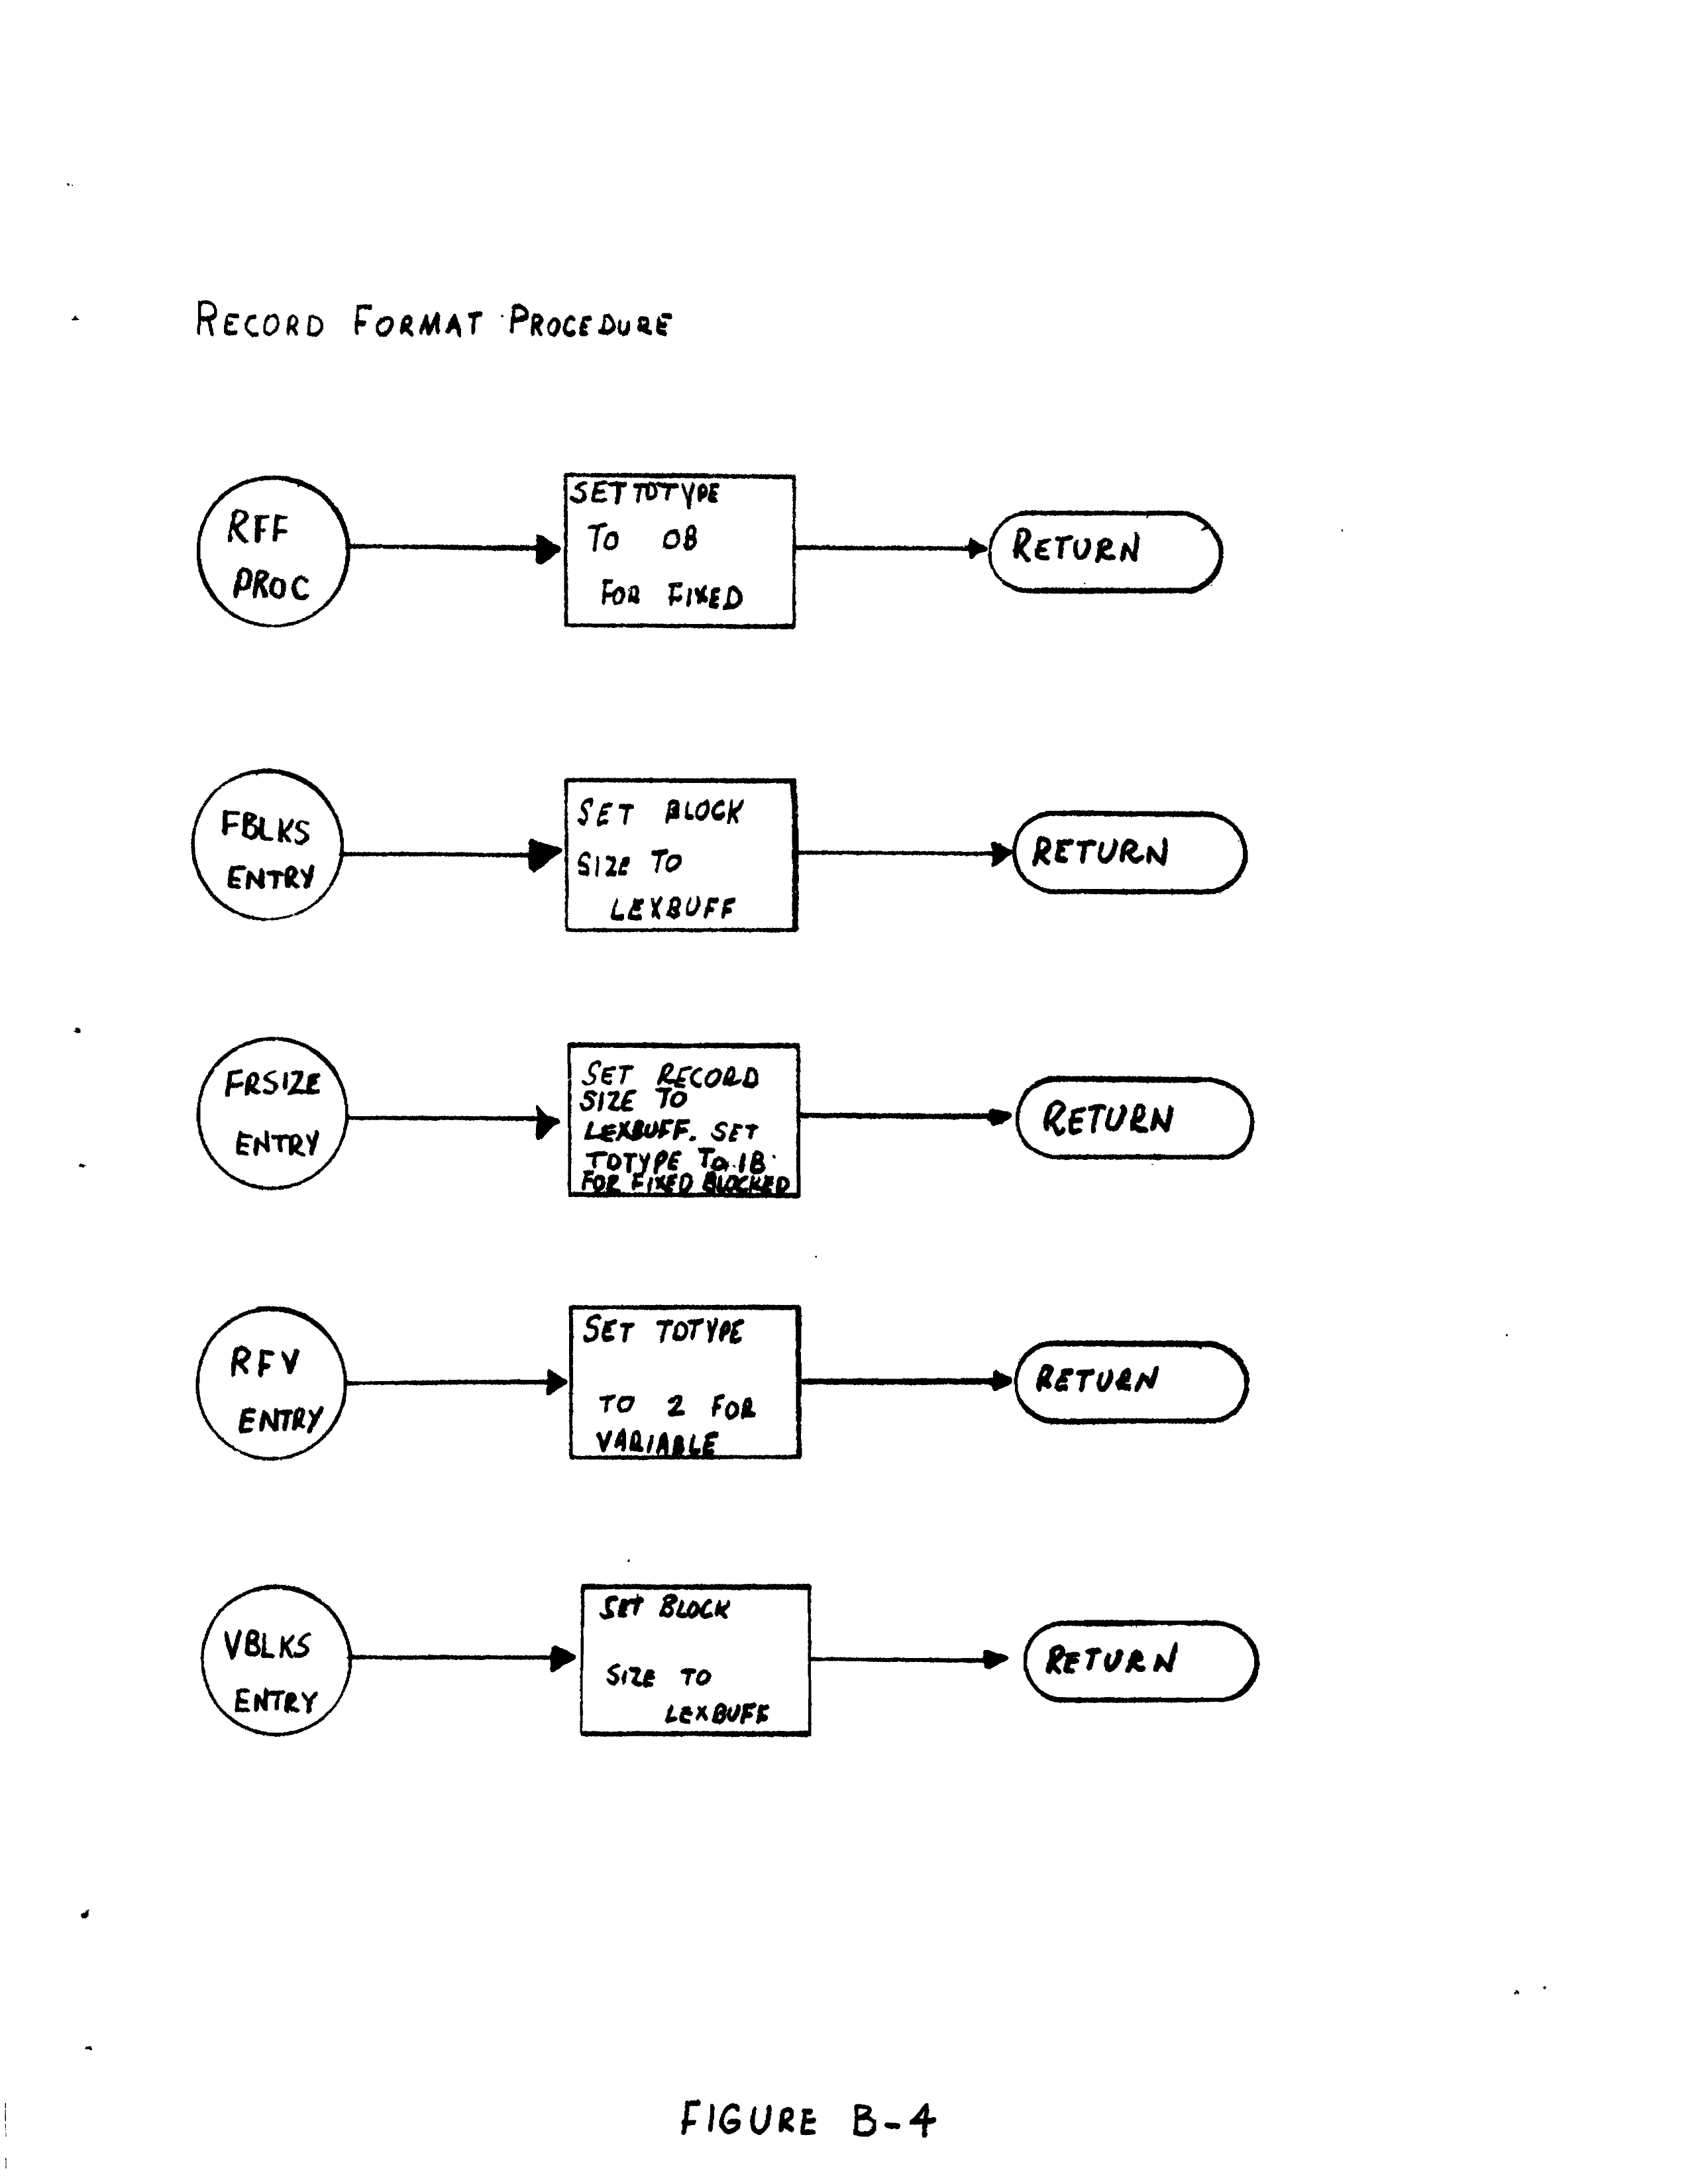 RECORD FORMAT PROCEDURE
RFF
PROC
SET TDTYPE
TO 0B
FOR FIXED
RETURN
FBLKS
ENTRY
SET BLOCK
SIZE TO
LEXBUFF
RETURN
FRSIZE
ENTRY
SET RECORD
SIZE TO
LEXBUFF. SET
TDTYPE TO 1B
FOR FIXED BLOCKED
RETURN
RFV
ENTRY
SET TDTYPE
TO 2 FOR
VARIABLE
RETURN
VBLKS
ENTRY
SET BLOCK
SIZE TO
LEXBUFF
RETURN
FIGURE B-4